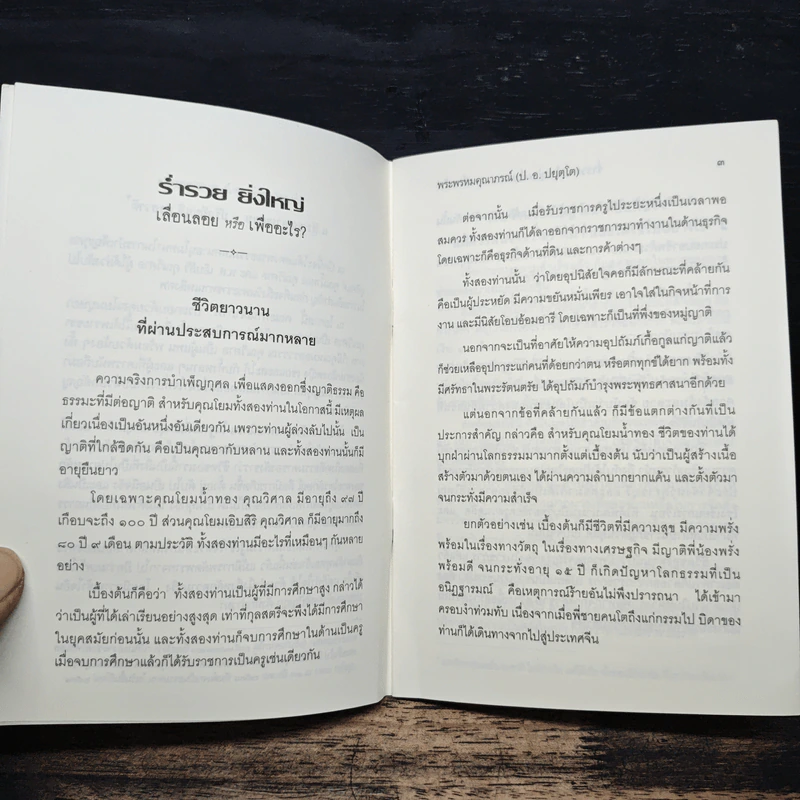 ร่ำรวย ยิ่งใหญ่
เลื่อนลอย หรือ เพื่ออะไร?
ชีวิตยาวนาน
ที่ผ่านประสบการณ์มากหลาย
ความจริงการบำเพ็ญกุศล เพื่อแสดงออกซึ่งญาติธรรม คือ
ธรรมะที่มีต่อญาติ สำหรับคุณโยมทั้งสองท่านในโอกาสนี้ มีเหตุผล
เกี่ยวเนื่องเป็นอันหนึ่งอันเดียวกัน เพราะท่านผู้ล่วงลับไปนั้น เป็น
ญาติที่ใกล้ชิดกัน คือเป็นคุณอากับหลาน และทั้งสองท่านนั้นก็มี
อายุยืนยาว
โดยเฉพาะคุณโยมน้ำทอง คุณวิศาล มีอายุถึง ๙๗ ปี
เกือบจะถึง ๑๐๐ ปี ส่วนคุณโยมเอิบสิริ คุณวิศาล ก็มีอายุมากถึง
๘๐ ปี ๙ เดือน ตามประวัติ ทั้งสองท่านมีอะไรที่เหมือนๆ กันหลาย
อย่าง
เบื้องต้นก็คือว่า ทั้งสองท่านเป็นผู้ที่มีการศึกษาสูง กล่าวได้
ว่าเป็นผู้ที่ได้เล่าเรียนอย่างสูงสุด เท่าที่กุลสตรีจะพึงได้มีการศึกษา
ในยุคสมัยก่อนนั้น และทั้งสองท่านก็จบการศึกษาในด้านเป็นครู
เมื่อจบการศึกษาแล้วก็ได้รับราชการเป็นครูเช่นเดียวกัน
พระพรหมคุณาภรณ์ (ป. อ. ปยุตฺโต) ๓
ต่อจากนั้น เมื่อรับราชการครูไประยะหนึ่งเป็นเวลาพอ
สมควร ทั้งสองท่านก็ได้ลาออกจากราชการมาทำงานในด้านธุรกิจ
โดยเฉพาะก็คือธุรกิจด้านที่ดิน และการค้าต่างๆ
ทั้งสองท่านนั้น ว่าโดยอุปนิสัยใจคอก็มีลักษณะที่คล้ายกัน
คือเป็นผู้ประหยัด มีความขยันหมั่นเพียร เอาใจใส่ในกิจหน้าที่การ
งาน และมีนิสัยโอบอ้อมอารี โดยเฉพาะก็เป็นที่พึ่งของหมู่ญาติ
นอกจากจะเป็นที่อาศัยให้ความอุปถัมภ์เกื้อกูลแก่ญาติแล้ว
ก็ช่วยเหลืออุปการะแก่คนที่ด้อยกว่าตน หรือตกทุกข์ได้ยาก พร้อมทั้ง
มีศรัทธาในพระรัตนตรัย ได้อุปถัมภ์บำรุงพระพุทธศาสนาอีกด้วย
แต่นอกจากข้อที่คล้ายกันแล้ว ก็มีข้อแตกต่างกันที่เป็น
ประการสำคัญ กล่าวคือ สำหรับคุณโยมน้ำทอง ชีวิตของท่านได้
บุกฝ่าผ่านโลกธรรมมามากตั้งแต่เบื้องต้น นับว่าเป็นผู้สร้างเนื้อ
สร้างตัวมาด้วยตนเอง ได้ผ่านความลำบากยากแค้น และตั้งตัวมา
จนกระทั่งมีความสำเร็จ
ยกตัวอย่างเช่น เบื้องต้นก็มีชีวิตที่มีความสุข มีความพรั่ง
พร้อมในเรื่องทางวัตถุ ในเรื่องทางเศรษฐกิจ มีญาติพี่น้องพรั่ง
พร้อมดี จนกระทั่งอายุ ๑๕ ปี ก็เกิดปัญหาโลกธรรมที่เป็น
อนิฏฐารมณ์ คือเหตุการณ์ร้ายอันไม่พึงปรารถนา ได้เข้ามา
ครอบงำท่วมทับ เนื่องจากเมื่อพี่ชายคนโตถึงแก่กรรมไป บิดาของ
ท่านก็ได้เดินทางจากไปสู่ประเทศจีน